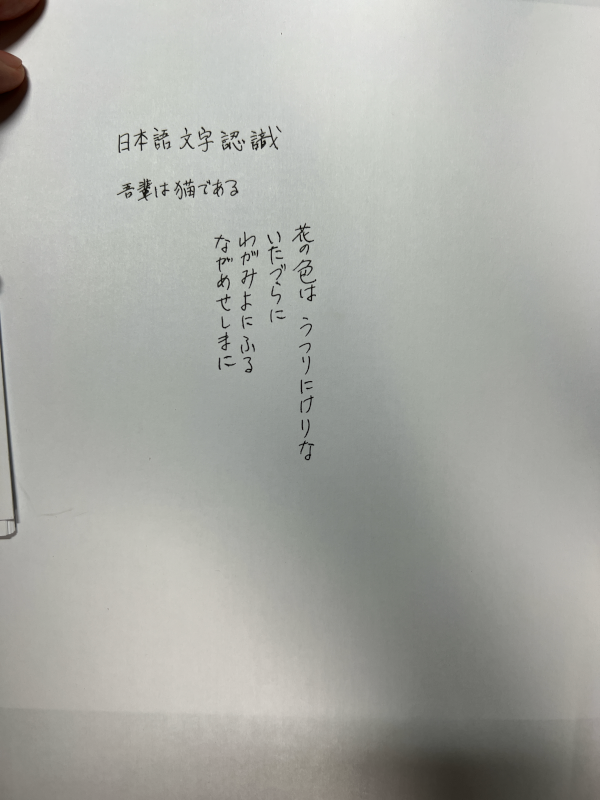 日本語文字認識
吾輩は猫である
花の色は うつりにけりな
いたづらに
わがみよにふる
ながめせしまに